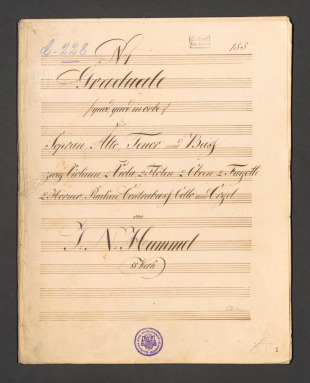 C-228
155
Nº 1
Graduale
(quod quod in orbe)
für
Sopran, Alto, Tenor und Bass
zwey Violinen, 2 Viola, 2 Flöten, 2 Oboen, 2 Fagotti
2 Hörner, Pauken, Contrabass, Cello und Orgel
von
J. N. Hummel
88 Werk